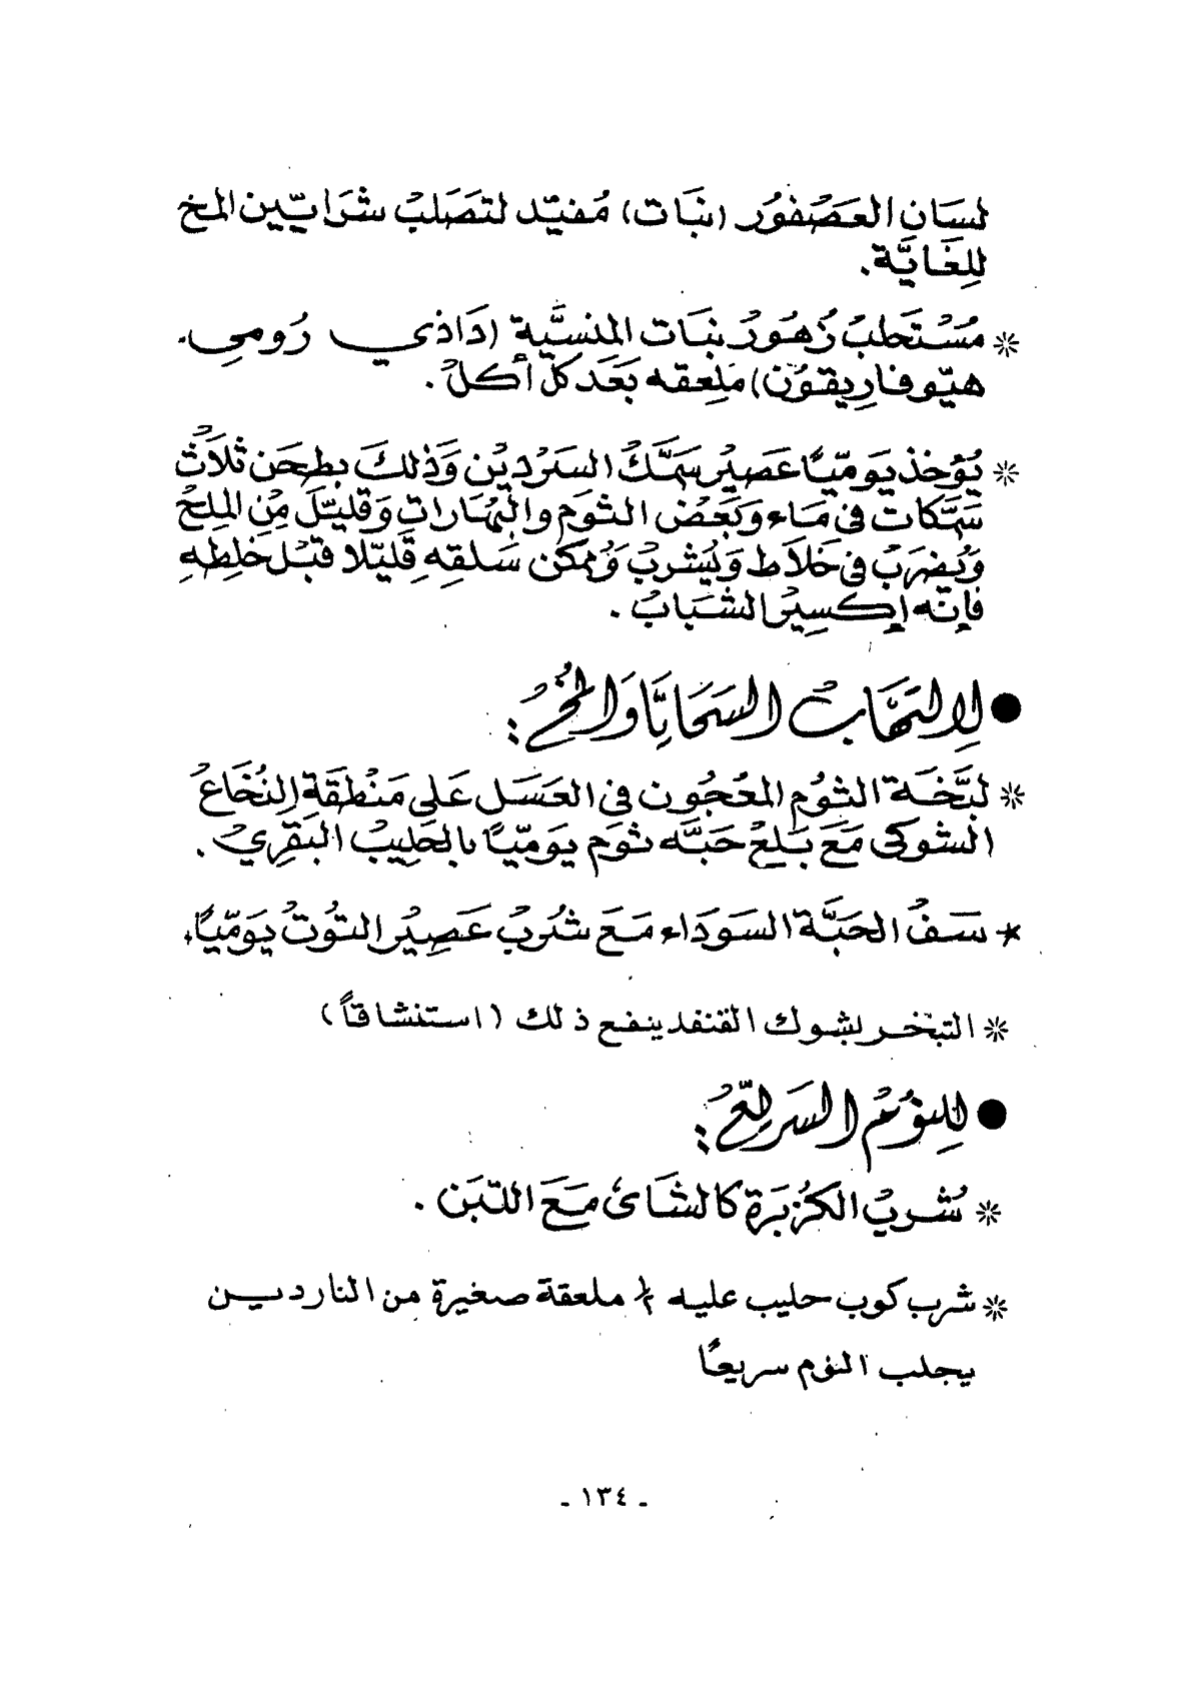 لسَان العَصْفور (نبَات) مُفيّد لتصَلبْ شرَاييّن المخ
للِغَايَّة.
* مُسْتحَلبْ زُهُورْ نبَات المنسيَّة (دَاذي رُومي.
هيّوفاريقوُن) ملعقه بَعَد كلّ أكلْ.
* يُؤخذ يَوميّاً عَصيرْ سَمَكْ السَردْين وَذلكَ بطحَن ثلاَثْ
سَمَكاتْ فى مَاء وَبَعَضْ الثوَم والبهَاراتِ وَقليّلَ مِنْ الملِحْ
وَيُضَربَ فى خَلاَط وَيُشربْ وَيُمكنْ سَلقِهِ قليّلا قبْل خَلطِهِ
فإنّه إكسيرْ الشبَابْ.
● لِالتهَابْ السَحَايَا وَالمخُ :
* لبَّخَة الثوُم المعُجُون فى العَسَل عَلى مَنْطقَة النُخَاعْ
الشوكى مَعَ بَلعْ حَبَّه ثوَم يَوميّاً بالحَليبْ البَقريْ.
* سَفُ الحَبَّة السَودَاء مَعَ شُربْ عَصِيرْ التوُتْ يَوَميّاً،
* التبخر بشوك القنفد ينفع ذلك (استنشاقاً)
● للِنوُم السَريّعْ :
* شُربْ الكزُبَرة كالشَائ مَعَ اللبَن.
* شرب كوب حليب عليه ½ ملعقة صغيرة من الناردين
يجلب النوم سريعاً
- ١٣٤ -